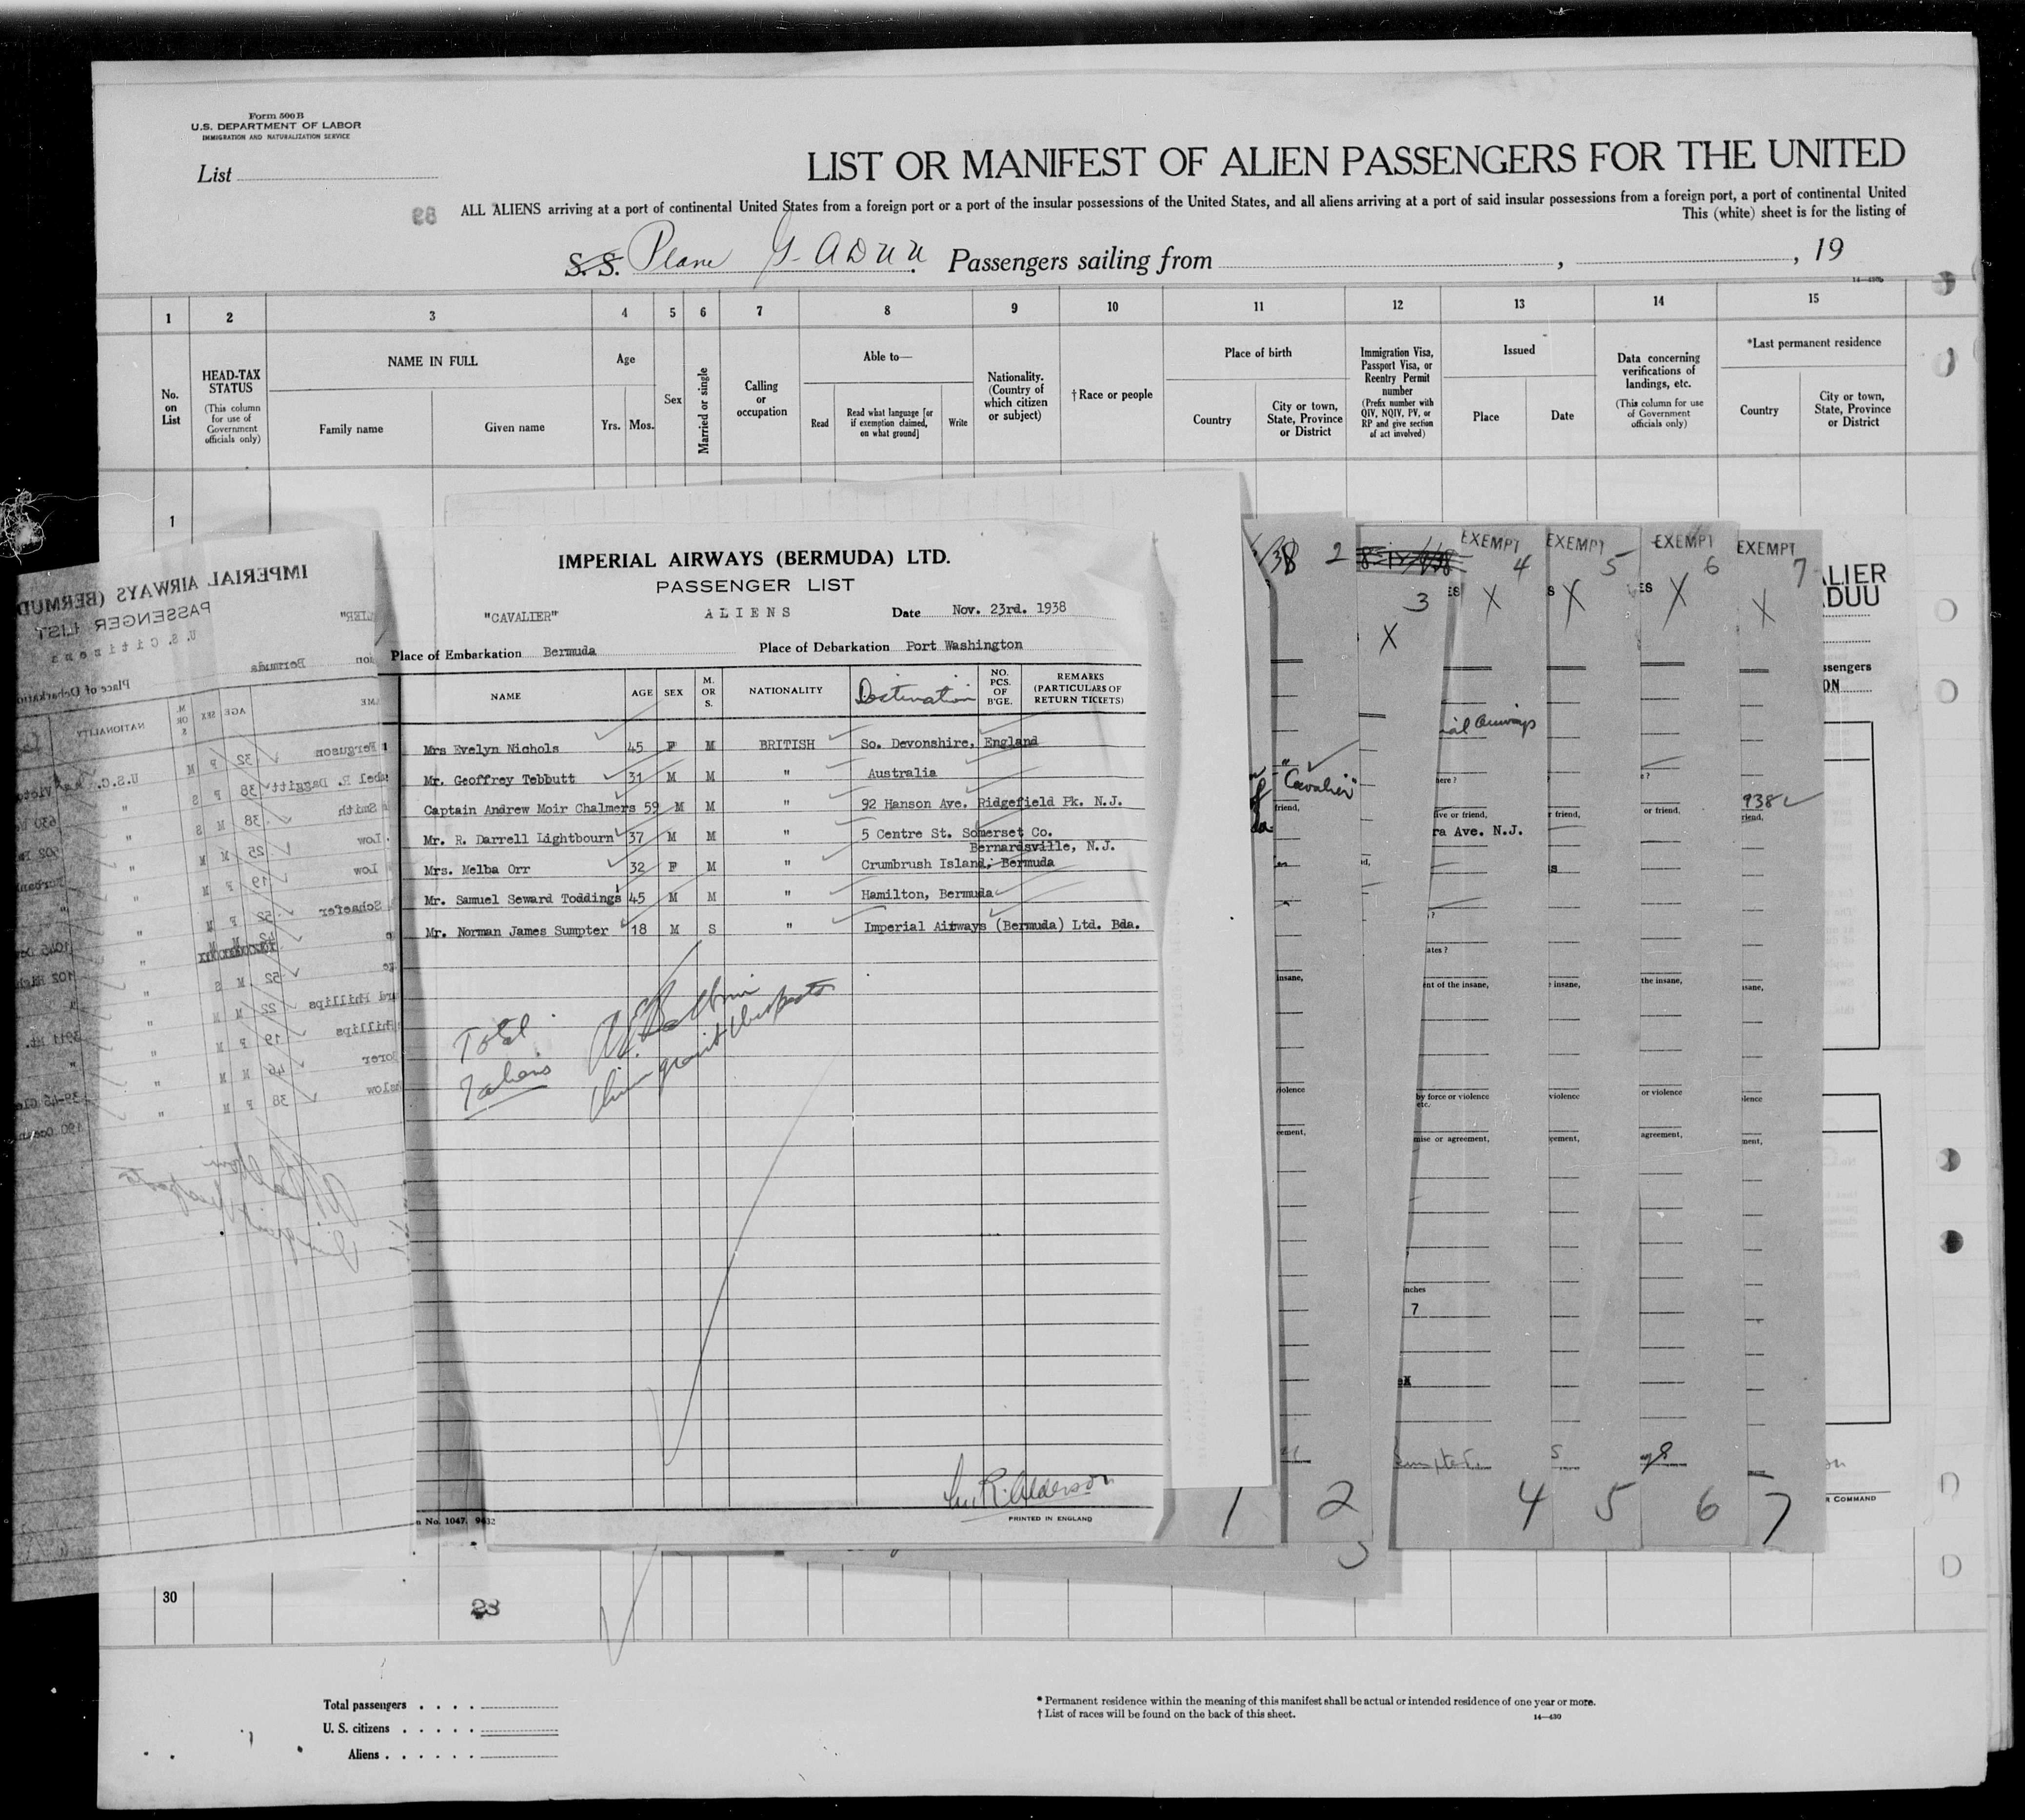 Form 500 B
U.S. DEPARTMENT OF LABOR
IMMIGRATION AND NATURALIZATION SERVICE
List
LIST OR MANIFEST OF ALIEN PASSENGERS FOR THE UNITED
89
ALL ALIENS arriving at a port of continental United States from a foreign port or a port of the insular possessions of the United States, and all aliens arriving at a port of said insular possessions from a foreign port, a port of continental United
This (white) sheet is for the listing of
S.S. Plane G-ADUU Passengers sailing from , , 19
1 2 3 4 5 6 7 8 9 10 11 12 13 14 15
No. on List
HEAD-TAX STATUS
(This column for use of Government officials only)
NAME IN FULL
Family name
Given name
Age
Yrs. Mos.
Sex
Married or single
Calling or occupation
Able to—
Read
Read what language [or if exemption claimed, on what ground]
Write
Nationality. (Country of which citizen or subject)
† Race or people
Place of birth
Country
City or town, State, Province or District
Immigration Visa, Passport Visa, or Reentry Permit number
(Prefix number with QIV, NQIV, PV, or RP and give section of act involved)
Issued
Place
Date
Data concerning verifications of landings, etc.
(This column for use of Government officials only)
*Last permanent residence
Country
City or town, State, Province or District
1
IMPERIAL AIRWAYS (BERMUDA) LTD.
PASSENGER LIST
"CAVALIER" ALIENS Date Nov. 23rd. 1938
Place of Embarkation Bermuda Place of Debarkation Port Washington
NAME AGE SEX M. OR S. NATIONALITY Destination NO. PCS. OF B'GE. REMARKS (PARTICULARS OF RETURN TICKETS)
Mrs Evelyn Nichols 45 F M BRITISH So. Devonshire, England
Mr. Geoffrey Tebbutt 31 M M " Australia
Captain Andrew Moir Chalmers 59 M M " 92 Hanson Ave. Ridgefield Pk. N.J.
Mr. R. Darrell Lightbourn 37 M M " 5 Centre St. Somerset Co.
Bernardsville, N.J.
Mrs. Melba Orr 32 F M " Crumbrush Island, Bermuda
Mr. Samuel Seward Toddings 45 M M " Hamilton, Bermuda
Mr. Norman James Sumpter 18 M S " Imperial Airways (Bermuda) Ltd. Bda.
Total
7 aliens
Immigrant Inspector
PRINTED IN ENGLAND
No. 1047.
IMPERIAL AIRWAYS (BERMUD
PASSENGER LIST
U.S. Citizens
Bermuda
Place of Debarkation
NATIONALITY
AGE SEX M. OR S.
Ferguson 32 F M U.S.C.
R. Daggitt 38 F S "
Smith 38 M S "
Low 25 M M "
Low 19 F M "
Schaefer 52 F M "
52 M S "
Phillips 22 M M "
Phillips 19 F M "
46 M M "
38 F M "
38 2
3
X
EXEMPT 4
X
EXEMPT 5
X
EXEMPT 6
X
EXEMPT 7
X
"Cavalier"
friend,
Ave. N.J.
or friend,
insane,
of the insane,
insane,
the insane,
violence
by force or violence
etc.
violence
or violence
agreement,
or agreement,
inches
7
LIER
DUU
COMMAND
1 2 3 4 5 6 7
30
23
Total passengers
U. S. citizens
Aliens
* Permanent residence within the meaning of this manifest shall be actual or intended residence of one year or more.
† List of races will be found on the back of this sheet.
14—430